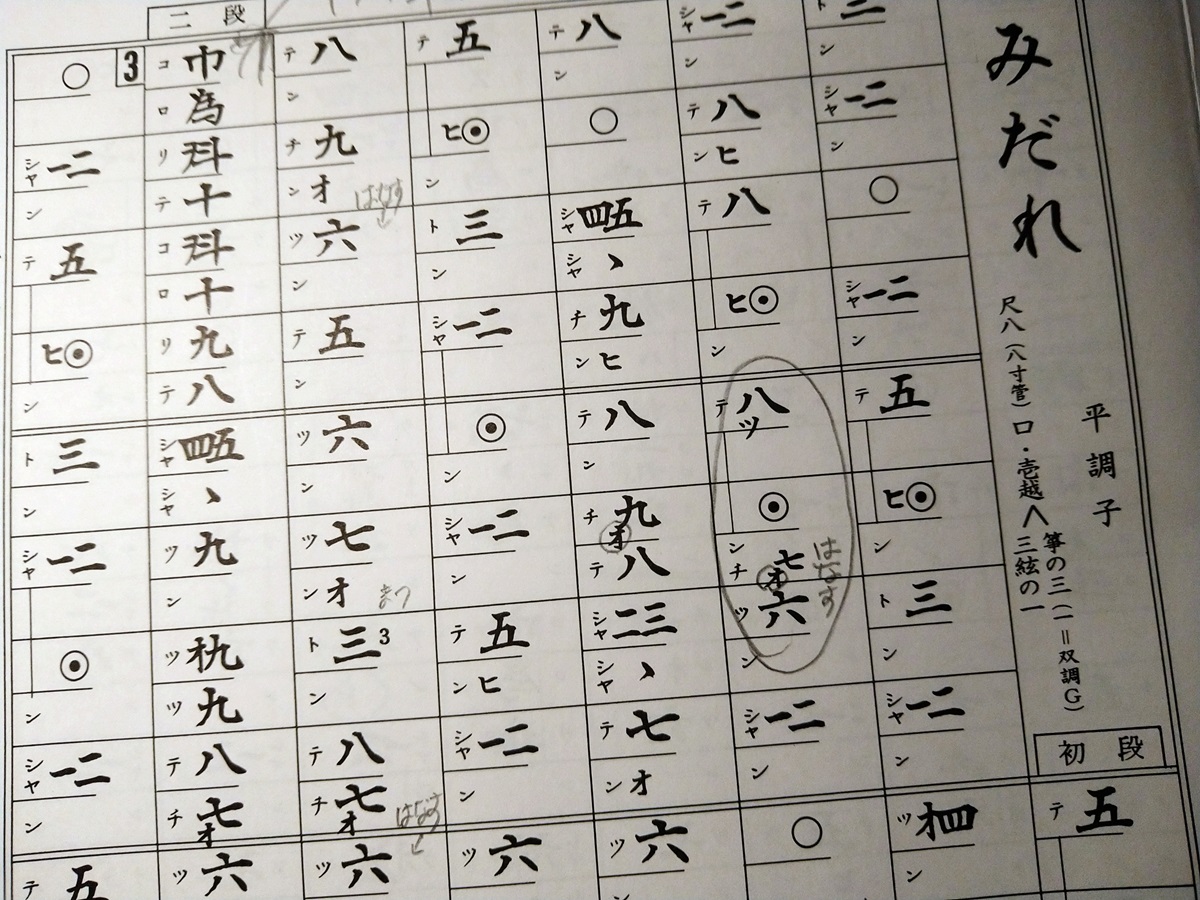 みだれ
平調子
尺八(八寸管)ロ・壱越
箏の三(一=双調G)
三絃の一
初段
テ五
ト三 ン シャ一二 ン ○ シャ一二 ン テ五 ヒ◉ ン ト三 ン シャ一二 ン ツオ四 ン
シャ一二 ン テ八 ンヒ テ八 ヒ◉ ン テ八ツ ◉ ン チ七オ ツ六 ン シャ一二 ン ○
はなす
テ八 ン ○ シャ四五 シャヽ チ九 ンヒ テ八 ン チ九オ テ八 シャ二三 シャヽ テ七 ンオ ツ六 ン
テ五 ヒ◉ ン ト三 ン シャ一二 ◉ ン シャ一二 ン テ五 ンヒ シャ一二 ン ツ六 ン
はなす
まつ
はなす
テ八 ン チ九 ンオ ツ六 ン テ五 ン ツ六 ン ツ七 ンオ ト三3 ン テ八 チ七オ ツ六
二段
コ巾 ロ為 リ斗 テ十 コ斗 ロ十 リ九 テ八 シャ四五 シャヽ ツ九 ン ツオ九 ツ九 テ八 チ七オ ツ六
3
○ シャ一二 ン テ五 ヒ◉ ン ト三 ン シャ一二 ◉ ン シャ一二 ン テ五